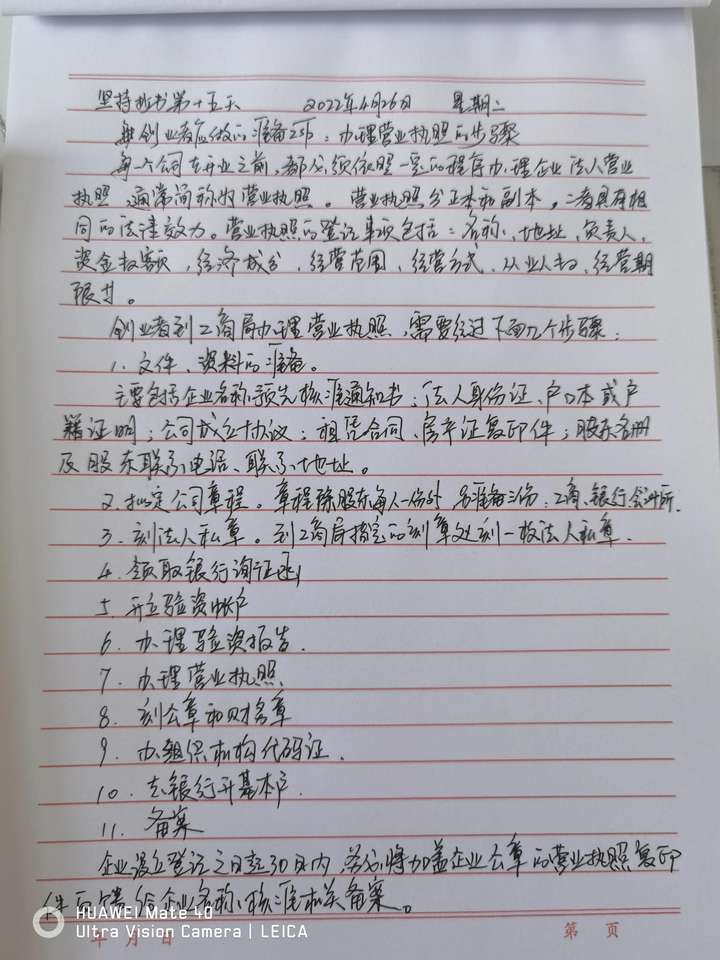 坚持抄书第十五天 2022年4月26日 星期二
创业者应做的准备工作：办理营业执照的步骤
每一个公司在开业之前，都必须依照一定的程序办理企业法人营业
执照，通常简称为营业执照。营业执照分正本和副本。二者具有相
同的法律效力。营业执照的登记事项包括：名称、地址、负责人、
资金数额，经济成分，经营范围、经营方式、从业人数、经营期
限等。
创业者到工商局办理营业执照，需要经过下面几个步骤：
1. 文件、资料的准备。
主要包括企业名称预先核准通知书；法人身份证、户口本或户
籍证明；公司成立协议；租赁合同、房产证复印件；股东名册
及股东联系电话、联系地址。
2. 拟定公司章程。章程除股东每人一份外 另准备三份：工商、银行、会计所.
3. 刻法人私章。到工商局指定的刻章处刻一枚法人私章.
4. 领取银行询证函
5. 开立验资帐户
6. 办理验资报告.
7. 办理营业执照.
8. 刻公章和财务章
9. 办组织机构代码证.
10. 去银行开基本户.
11. 备案
企业设立登记之日起30日内，务必将加盖企业公章的营业执照复印
件反馈给企业名称核准机关备案。
HUAWEI Mate 40
Ultra Vision Camera | LEICA
年 月 日 第 页